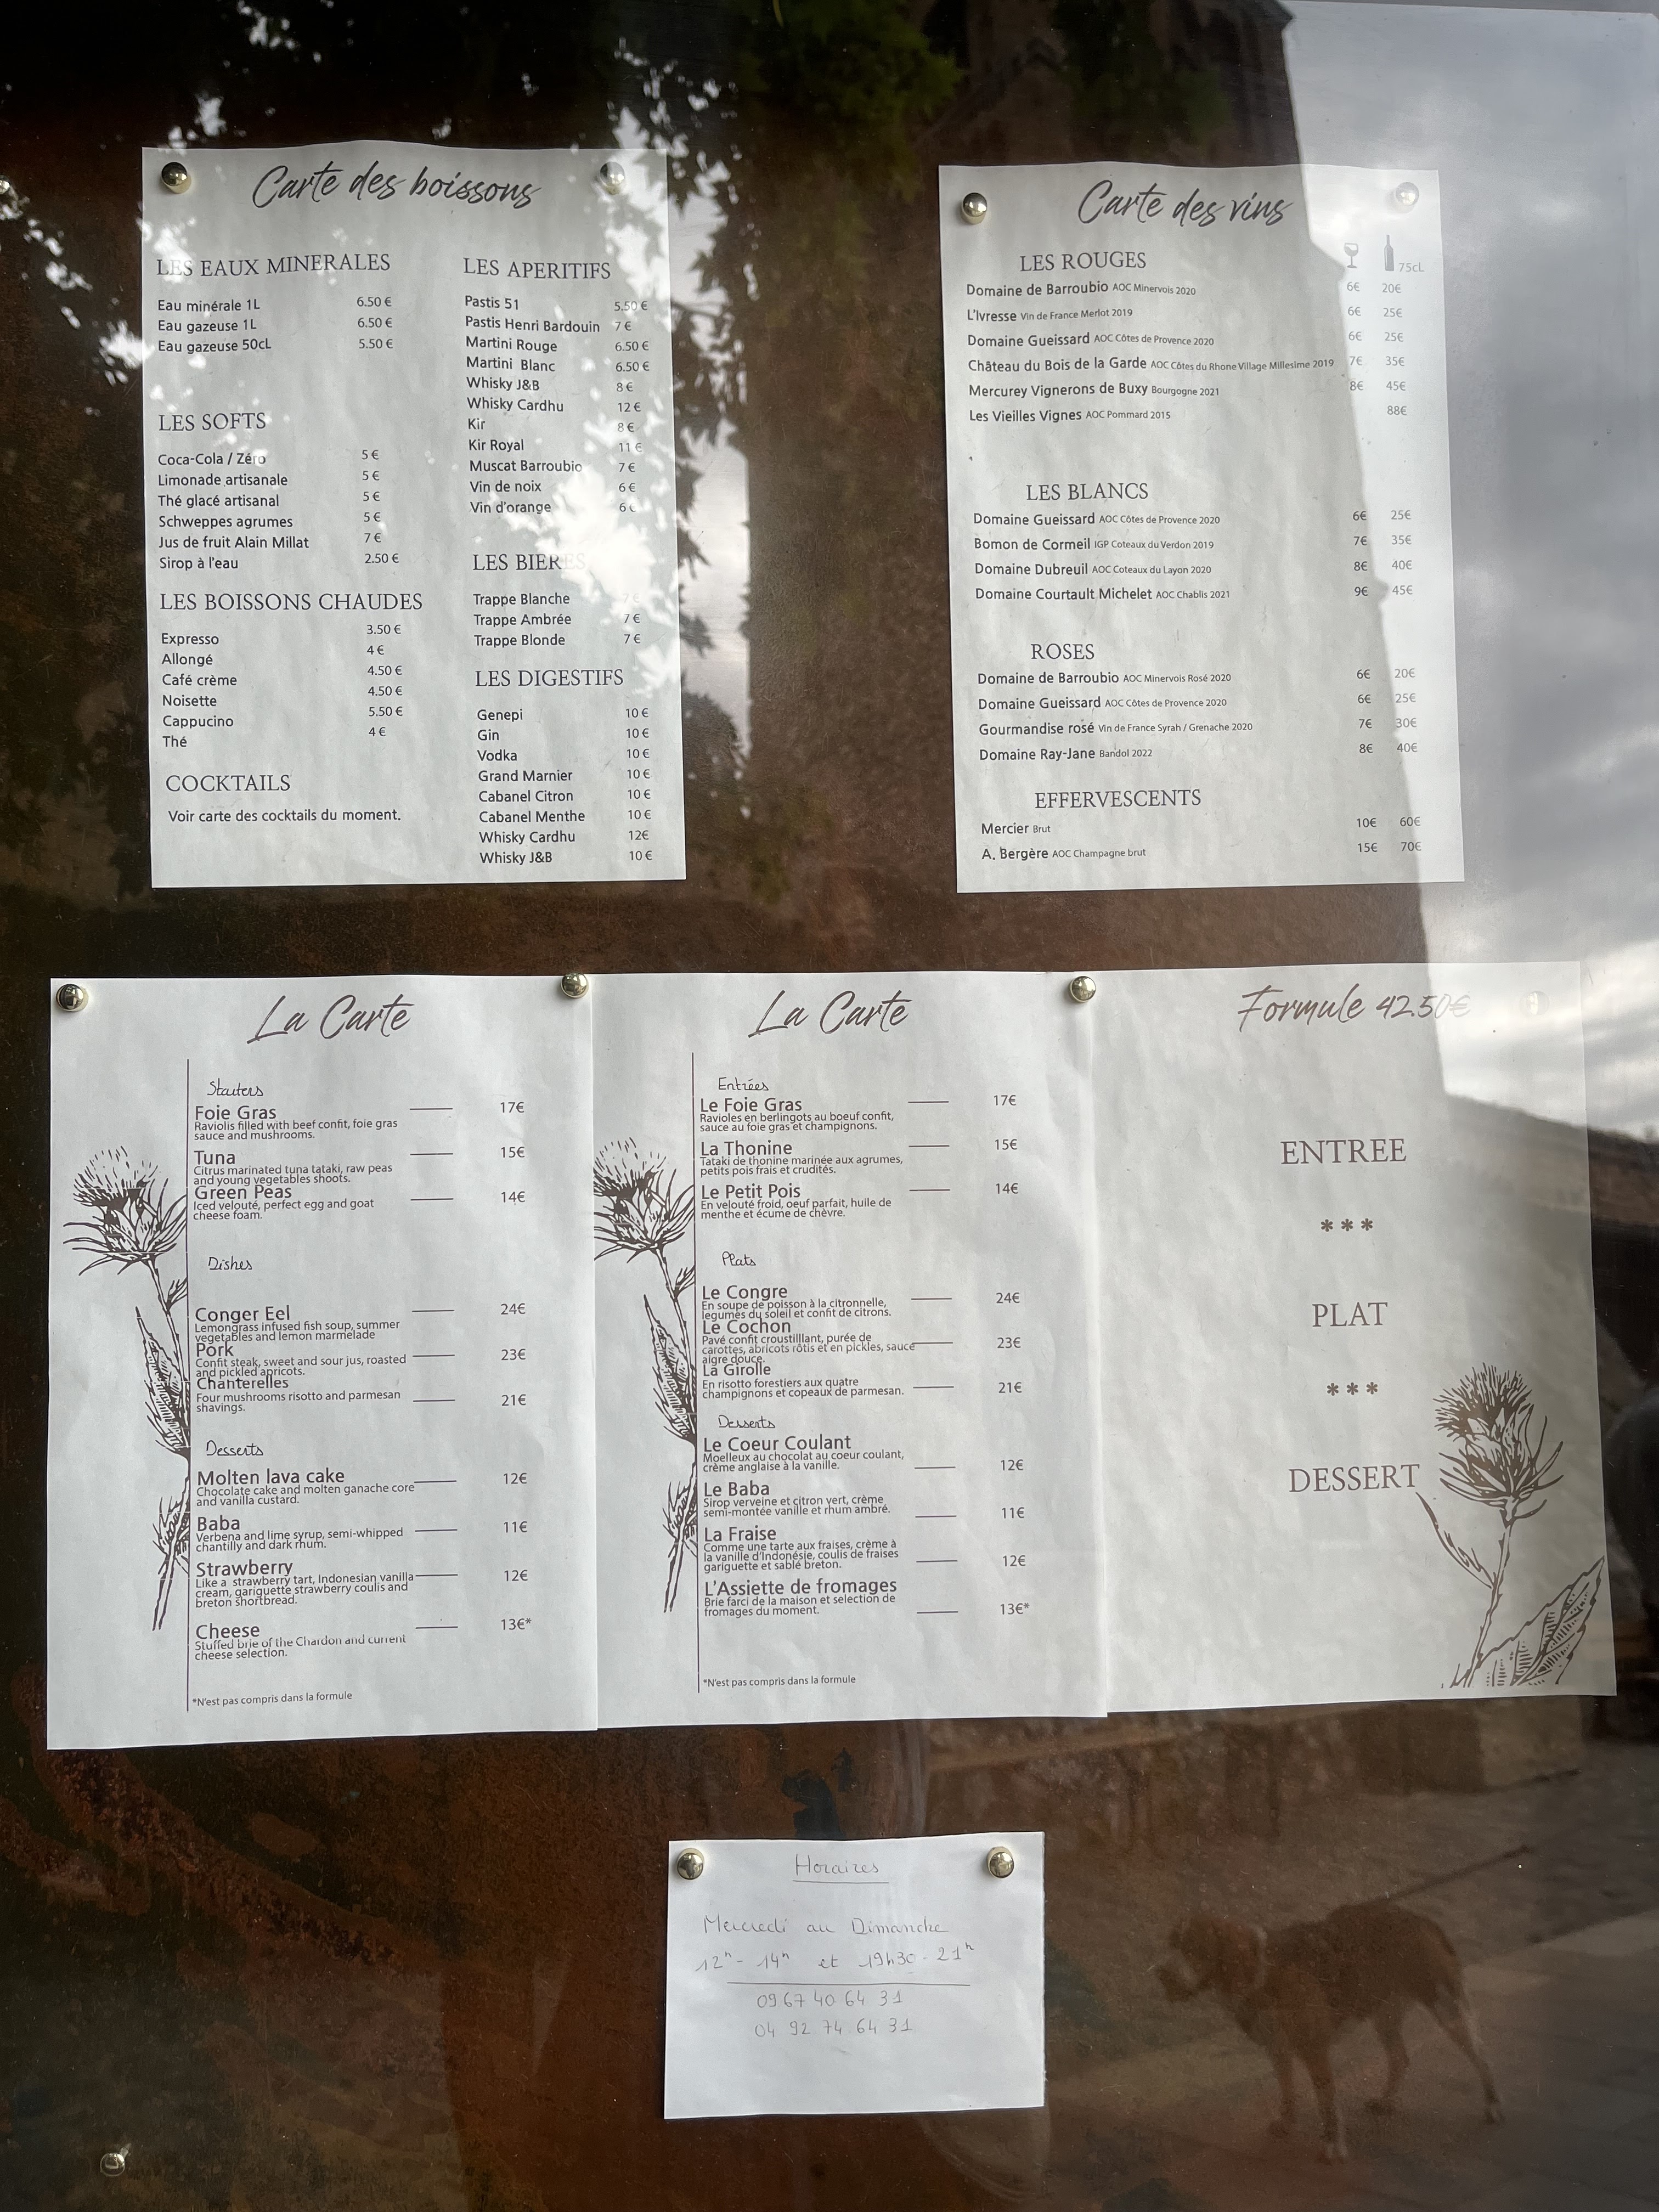 Carte des boissons
LES EAUX MINERALES
Eau minérale 1L 6.50 €
Eau gazeuse 1L 6.50 €
Eau gazeuse 50cL 5.50 €
LES SOFTS
Coca-Cola / Zéro 5 €
Limonade artisanale 5 €
Thé glacé artisanal 5 €
Schweppes agrumes 5 €
Jus de fruit Alain Millat 7 €
Sirop à l'eau 2.50 €
LES BOISSONS CHAUDES
Expresso 3.50 €
Allongé 4 €
Café crème 4.50 €
Noisette 4.50 €
Cappucino 5.50 €
Thé 4 €
COCKTAILS
Voir carte des cocktails du moment.
LES APERITIFS
Pastis 51 5.50 €
Pastis Henri Bardouin 7 €
Martini Rouge 6.50 €
Martini Blanc 6.50 €
Whisky J&B 8 €
Whisky Cardhu 12 €
Kir 8 €
Kir Royal 11 €
Muscat Barroubio 7 €
Vin de noix 6 €
Vin d'orange 6 €
LES BIERES
Trappe Blanche 7 €
Trappe Ambrée 7 €
Trappe Blonde 7 €
LES DIGESTIFS
Genepi 10 €
Gin 10 €
Vodka 10 €
Grand Marnier 10 €
Cabanel Citron 10 €
Cabanel Menthe 10 €
Whisky Cardhu 12€
Whisky J&B 10 €
Carte des vins
75cL
LES ROUGES
Domaine de Barroubio AOC Minervois 2020 6€ 20€
L'Ivresse Vin de France Merlot 2019 6€ 25€
Domaine Gueissard AOC Côtes de Provence 2020 6€ 25€
Château du Bois de la Garde AOC Côtes du Rhone Village Millesime 2019 7€ 35€
Mercurey Vignerons de Buxy Bourgogne 2021 8€ 45€
Les Vieilles Vignes AOC Pommard 2015 88€
LES BLANCS
Domaine Gueissard AOC Côtes de Provence 2020 6€ 25€
Bomon de Cormeil IGP Coteaux du Verdon 2019 7€ 35€
Domaine Dubreuil AOC Coteaux du Layon 2020 8€ 40€
Domaine Courtault Michelet AOC Chablis 2021 9€ 45€
ROSES
Domaine de Barroubio AOC Minervois Rosé 2020 6€ 20€
Domaine Gueissard AOC Côtes de Provence 2020 6€ 25€
Gourmandise rosé Vin de France Syrah / Grenache 2020 7€ 30€
Domaine Ray-Jane Bandol 2022 8€ 40€
EFFERVESCENTS
Mercier Brut 10€ 60€
A. Bergère AOC Champagne brut 15€ 70€
La Carte
Starters
Foie Gras 17€
Raviolis filled with beef confit, foie gras
sauce and mushrooms.
Tuna 15€
Citrus marinated tuna tataki, raw peas
and young vegetables shoots.
Green Peas 14€
Iced velouté, perfect egg and goat
cheese foam.
Dishes
Conger Eel 24€
Lemongrass infused fish soup, summer
vegetables and lemon marmelade
Pork 23€
Confit steak, sweet and sour jus, roasted
and pickled apricots.
Chanterelles
Four mushrooms risotto and parmesan 21€
shavings.
Desserts
Molten lava cake 12€
Chocolate cake and molten ganache core
and vanilla custard.
Baba 11€
Verbena and lime syrup, semi-whipped
chantilly and dark rhum.
Strawberry 12€
Like a strawberry tart, Indonesian vanilla
cream, gariguette strawberry coulis and
breton shortbread.
Cheese 13€*
Stuffed brie of the Chardon and current
cheese selection.
*N'est pas compris dans la formule
La Carte
Entrées
Le Foie Gras 17€
Ravioles en berlingots au boeuf confit,
sauce au foie gras et champignons.
La Thonine 15€
Tataki de thonine marinée aux agrumes,
petits pois frais et crudités.
Le Petit Pois 14€
En velouté froid, oeuf parfait, huile de
menthe et écume de chèvre.
Plats
Le Congre 24€
En soupe de poisson à la citronnelle,
legumes du soleil et confit de citrons.
Le Cochon
Pavé confit croustilllant, purée de 23€
carottes, abricots rôtis et en pickles, sauce
aigre douce.
La Girolle
En risotto forestiers aux quatre 21€
champignons et copeaux de parmesan.
Desserts
Le Coeur Coulant
Moelleux au chocolat au coeur coulant,
crème anglaise à la vanille. 12€
Le Baba
Sirop verveine et citron vert, crème
semi-montée vanille et rhum ambré. 11€
La Fraise
Comme une tarte aux fraises, crème à
la vanille d'Indonésie, coulis de fraises 12€
gariguette et sablé breton.
L'Assiette de fromages
Brie farci de la maison et selection de
fromages du moment. 13€*
*N'est pas compris dans la formule
Formule 42.50€
ENTREE
***
PLAT
***
DESSERT
Horaires
Mercredi au Dimanche
12h - 14h et 19h30 - 21h
09 67 40 64 31
04 92 74 64 31